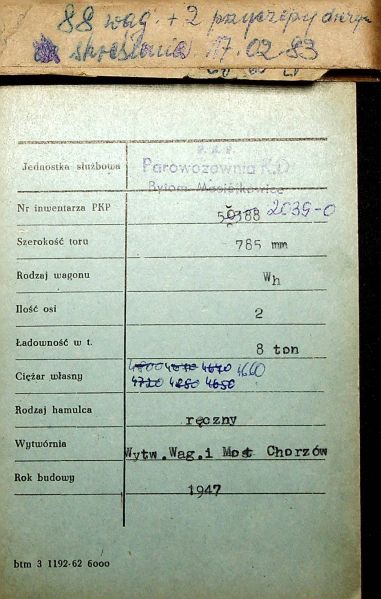 88 wag. + 2 przyczepy
skreślenia 17.02.83
Jednostka służbowa
P.K.P.
Parowozownia K.D
Bytom Maciejkowice
Nr inwentarza PKP 50388 2039-0
Szerokość toru 785 mm
Rodzaj wagonu Wh
Ilość osi 2
Ładowność w t. 8 ton
Ciężar własny 4660
4720 4650
Rodzaj hamulca ręczny
Wytwórnia Wytw.Wag.i Most Chorzów
Rok budowy 1947
btm 3 1192-62 6000